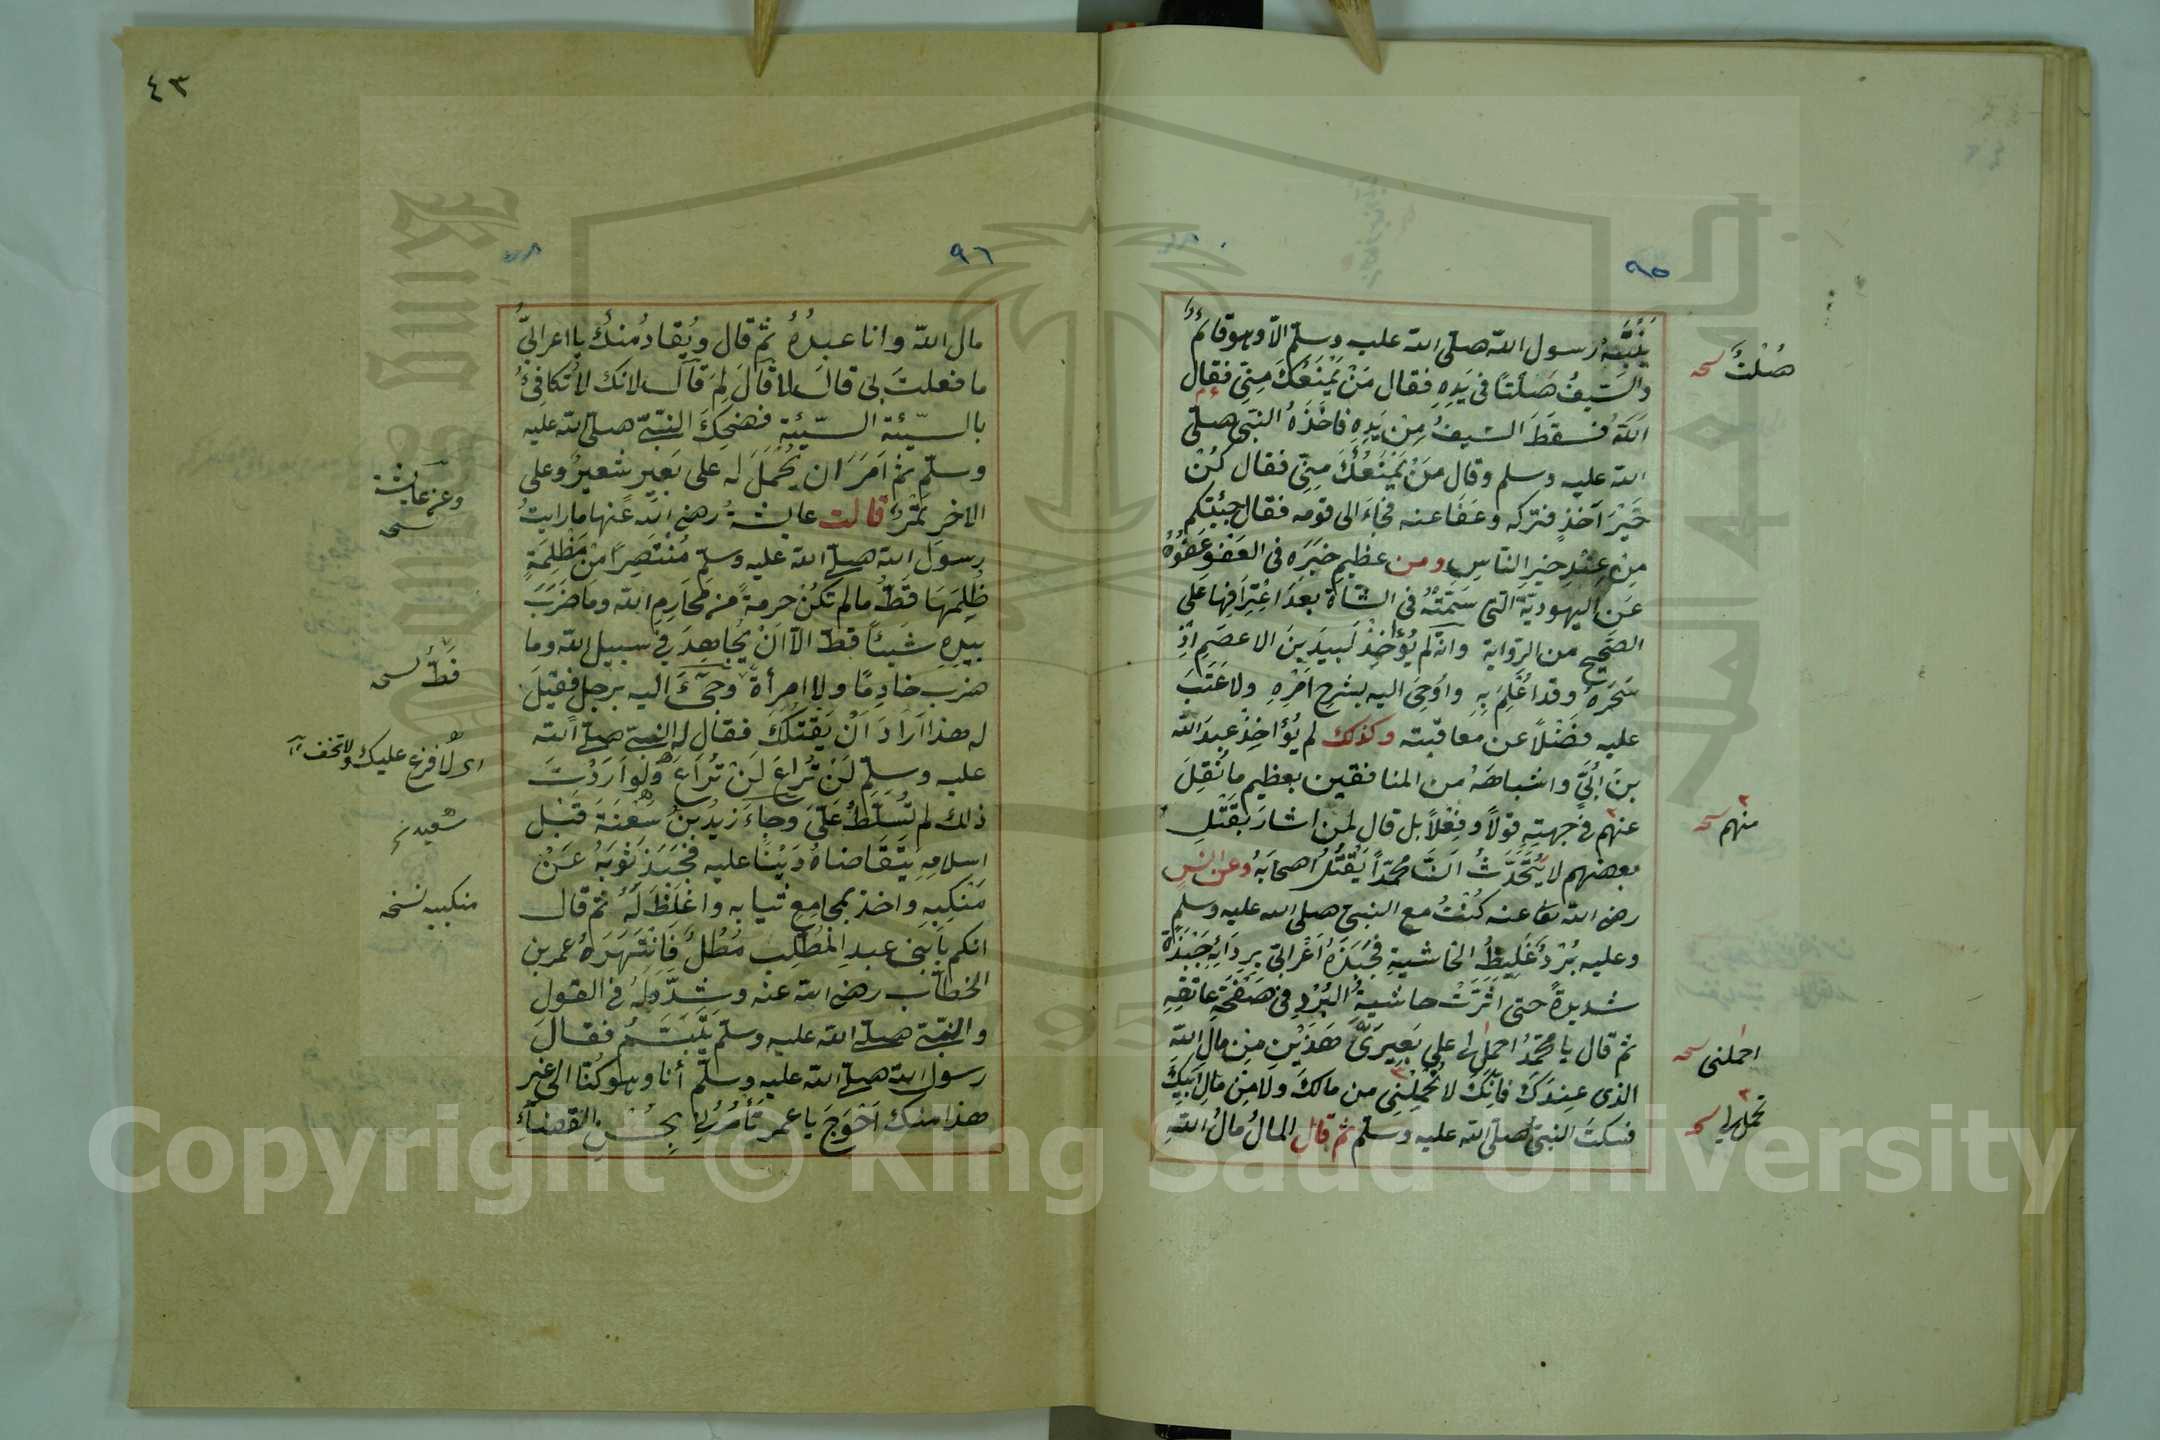 ٩٥
يَنْتَبِه رسول الله صلى الله عليه وسلم الا وهو قائم
والسيف صَلْتاً فى يَدِهِ فقال مَنْ يَمْنَعُكَ مِنّى فقال
الله فسقط السيف مِنْ يَدِهِ فاخَذَهُ النبى صلى
الله عليه وسلم وقال مَنْ يَمْنَعُكَ مِنّى فقال كُنْ
خَيْرَ آخذٍ فتركه وعَفَا عنه فجاءَ الى قومه فقال جئتكم
مِنْ عِنْدِ خيرِ الناسِ ومن عظيم خبَره فى العَفْو عَفْوُهُ
عَن اليهوديّة التى سَمَّتْهُ فى الشاة بعدَ اعْتِرَافِها عَلى
الصَحيح من الرّواية وانّه لم يُؤاخِذْ لَبيدَ بنَ الاعصَمِ اذْ
سَحَرَهُ وقد اُعْلِمَ بِهِ واُوحِىَ اليه بشرحِ اَمْرِهِ ولا عَتَبَ
عليه فَضْلاً عن معاقبته وكذلك لم يُؤاخِذْ عبدَ الله
بنَ اُبَىّ واشباهَهُ من المنافقين بعظيم ما نُقِلَ
عنهم فى جهتِهِ قولاً وفِعْلاً بل قال لمن اشارَ بقَتْلِ
بعضهم لا يُتَحَدَّثُ اَنّ محمّداً يَقْتُلُ اصحابَهُ وعن انسٍ
رضى الله تعا عنه كُنْتُ مع النبى صلى الله عليه وسلم
وعليه بُرْدٌ غَلِيظُ الحاشيةِ فجَبَذَهُ اَعْرابىّ بِرِدَائِهِ جَبْذَةً
شديدةً حتى اَثَّرَتْ حاشيةُ البُرْدِ فى صَفْحَةِ عاتقِهِ
ثم قال يا محمّدُ احمِلْ لى على بَعيرَىَّ هَذَيْنِ مِن مالِ الله
الذى عندَكَ فانّكَ لا تُحْمِلُنى من مالكَ ولا مِن مالِ اَبيكَ
فسكتَ النبىّ صلى الله عليه وسلم ثم قال المالُ مالُ اللهِ
صُلْتٌ نسخه
منهم نسخه
احملنى نسخه
تحمل لى نسخه
٤٣
٩٦
مال الله وانا عبدُهُ ثم قال ويُقادُ منكَ يا اعرابىّ
ما فعلتَ بى قالَ لا قالَ لِمَ قالَ لانك لا تُكافِئُ
بالسّيئة السّيّئةِ فضَحِكَ النبىّ صلى الله عليه
وسلّم ثم اَمَرَ ان يُحْمَلَ له على بَعيرٍ شعيرٌ وعلى
الاخرِ تَمْرٌ قالت عايشةُ رضى الله عنها ما رايتُ
رسولَ الله صلى الله عليه وسلم مُنْتَصِرًا مِنْ مَظْلِمَةٍ
ظُلِمَها قَطُّ ما لم تكُنْ حرمةً من محارِمِ الله وما ضرَبَ
بيدِهِ شيئاً قطّ الّا اَنْ يُجاهِدَ فى سبيل الله وما
ضربَ خادِمًا ولا امرأةً وجىَ اليه برجلٍ فقيلَ
له هذا اَرادَ اَنْ يَقْتلَكَ فقال له النبىّ صلى الله
عليه وسلم لَنْ تُراعَ لَنْ تُراعَ ولَو اَرَدْتَ
ذلك لم تُسَلَّطْ عَلَىَّ وجاءَ زيدُ بنُ سُعْنَةَ قبْل
اسلامِهِ يَتَقَاضاهُ دَيْنًا عليه فَجَبَذَ ثوبَهُ عَنْ
مَنْكِبِهِ واخذ بمجامِعِ ثيابِه واغْلَظَ لَهُ ثم قال
انكم يا بَنى عبدِ المُطّلِب مُطْلٌ فانْتَهَرَهُ عمر بن
الخطّاب رضى الله عنه وشدّدَ لهُ فى القول
والنبىّ صلى الله عليه وسلم يَتَبَسّمُ فقالَ
رسول الله صلى الله عليه وسلّم أنا وهو كُنّا الى غير
هذا منك اَحْوَجَ يا عمر تَأمُرُنى بِحُسْنِ القضاءِ
وعن عايشة
نسخه
قَطُّ نسخه
اى لا فزع عليك ولا تخف
سعيه نخ
منكبيه نسخه
Copyright © King Saud University